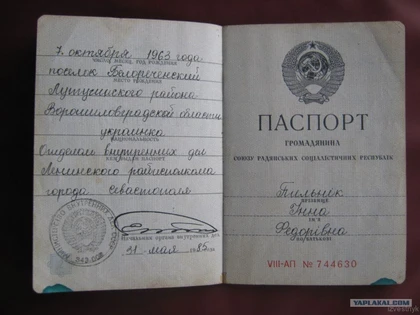 7 октября 1963 года
ЧИСЛО, МЕСЯЦ, ГОД РОЖДЕНИЯ
поселок Белореченский
МЕСТО РОЖДЕНИЯ
Лутугинского района
Ворошиловградской области
украинка
НАЦИОНАЛЬНОСТЬ
Отделом внутренних дел
КЕМ ВЫДАН ПАСПОРТ
Ленинского райисполкома
города Севастополя
Начальник органа внутренних дел
31 мая 1985 года
ПАСПОРТ
ГРОМАДЯНИНА
СОЮЗУ РАДЯНСЬКИХ СОЦІАЛІСТИЧНИХ РЕСПУБЛІК
Пильник
ПРІЗВИЩЕ
Інна
ІМ'Я
Федорівна
ПО БАТЬКОВІ
VIII-АП № 744630
YAPLAKAL.COM